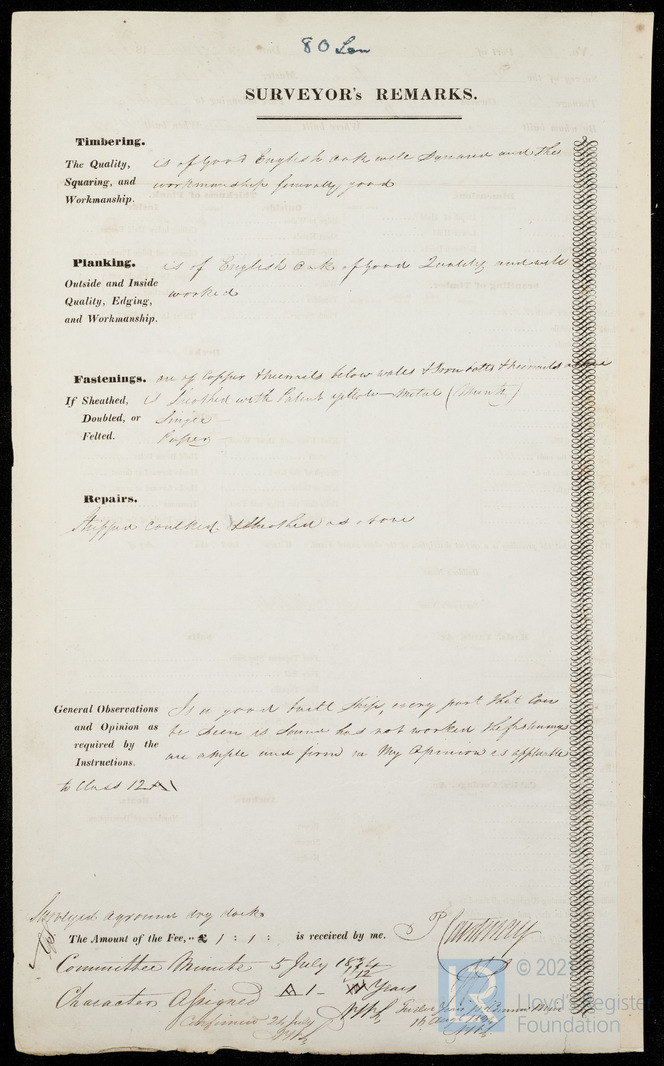 80 Lon
SURVEYOR's REMARKS.
Timbering.
The Quality, Squaring, and Workmanship.
is of Good English Oak well Squared and the
workmanship Generally good
Planking.
Outside and Inside Quality, Edging, and Workmanship.
is of English Oak of Good Quality and well
worked
Fastenings.
If Sheathed, Doubled, or Felted.
are of Copper & treenails below wales & Iron bolts & treenails above
is Sheathed with Patent yellow Metal (Muntz)
Single
Paper
Repairs.
Stripped caulked & Sheathed as above
General Observations and Opinion as required by the Instructions.
Is a good built Ship, every part that Can
be Seen is Sound has not worked the fastenings
are ample and firm in My Opinion is applicable
to Class 12 A1
Surveyed aground dry dock
The Amount of the Fee, .. £ 1 : 1 : is received by me.
P Courtenay
Committee Minute 5 July 18
Character Assigned A 1 - 12 Years
Confirmed 24 July
© 202
Lloyd's Register
Foundation